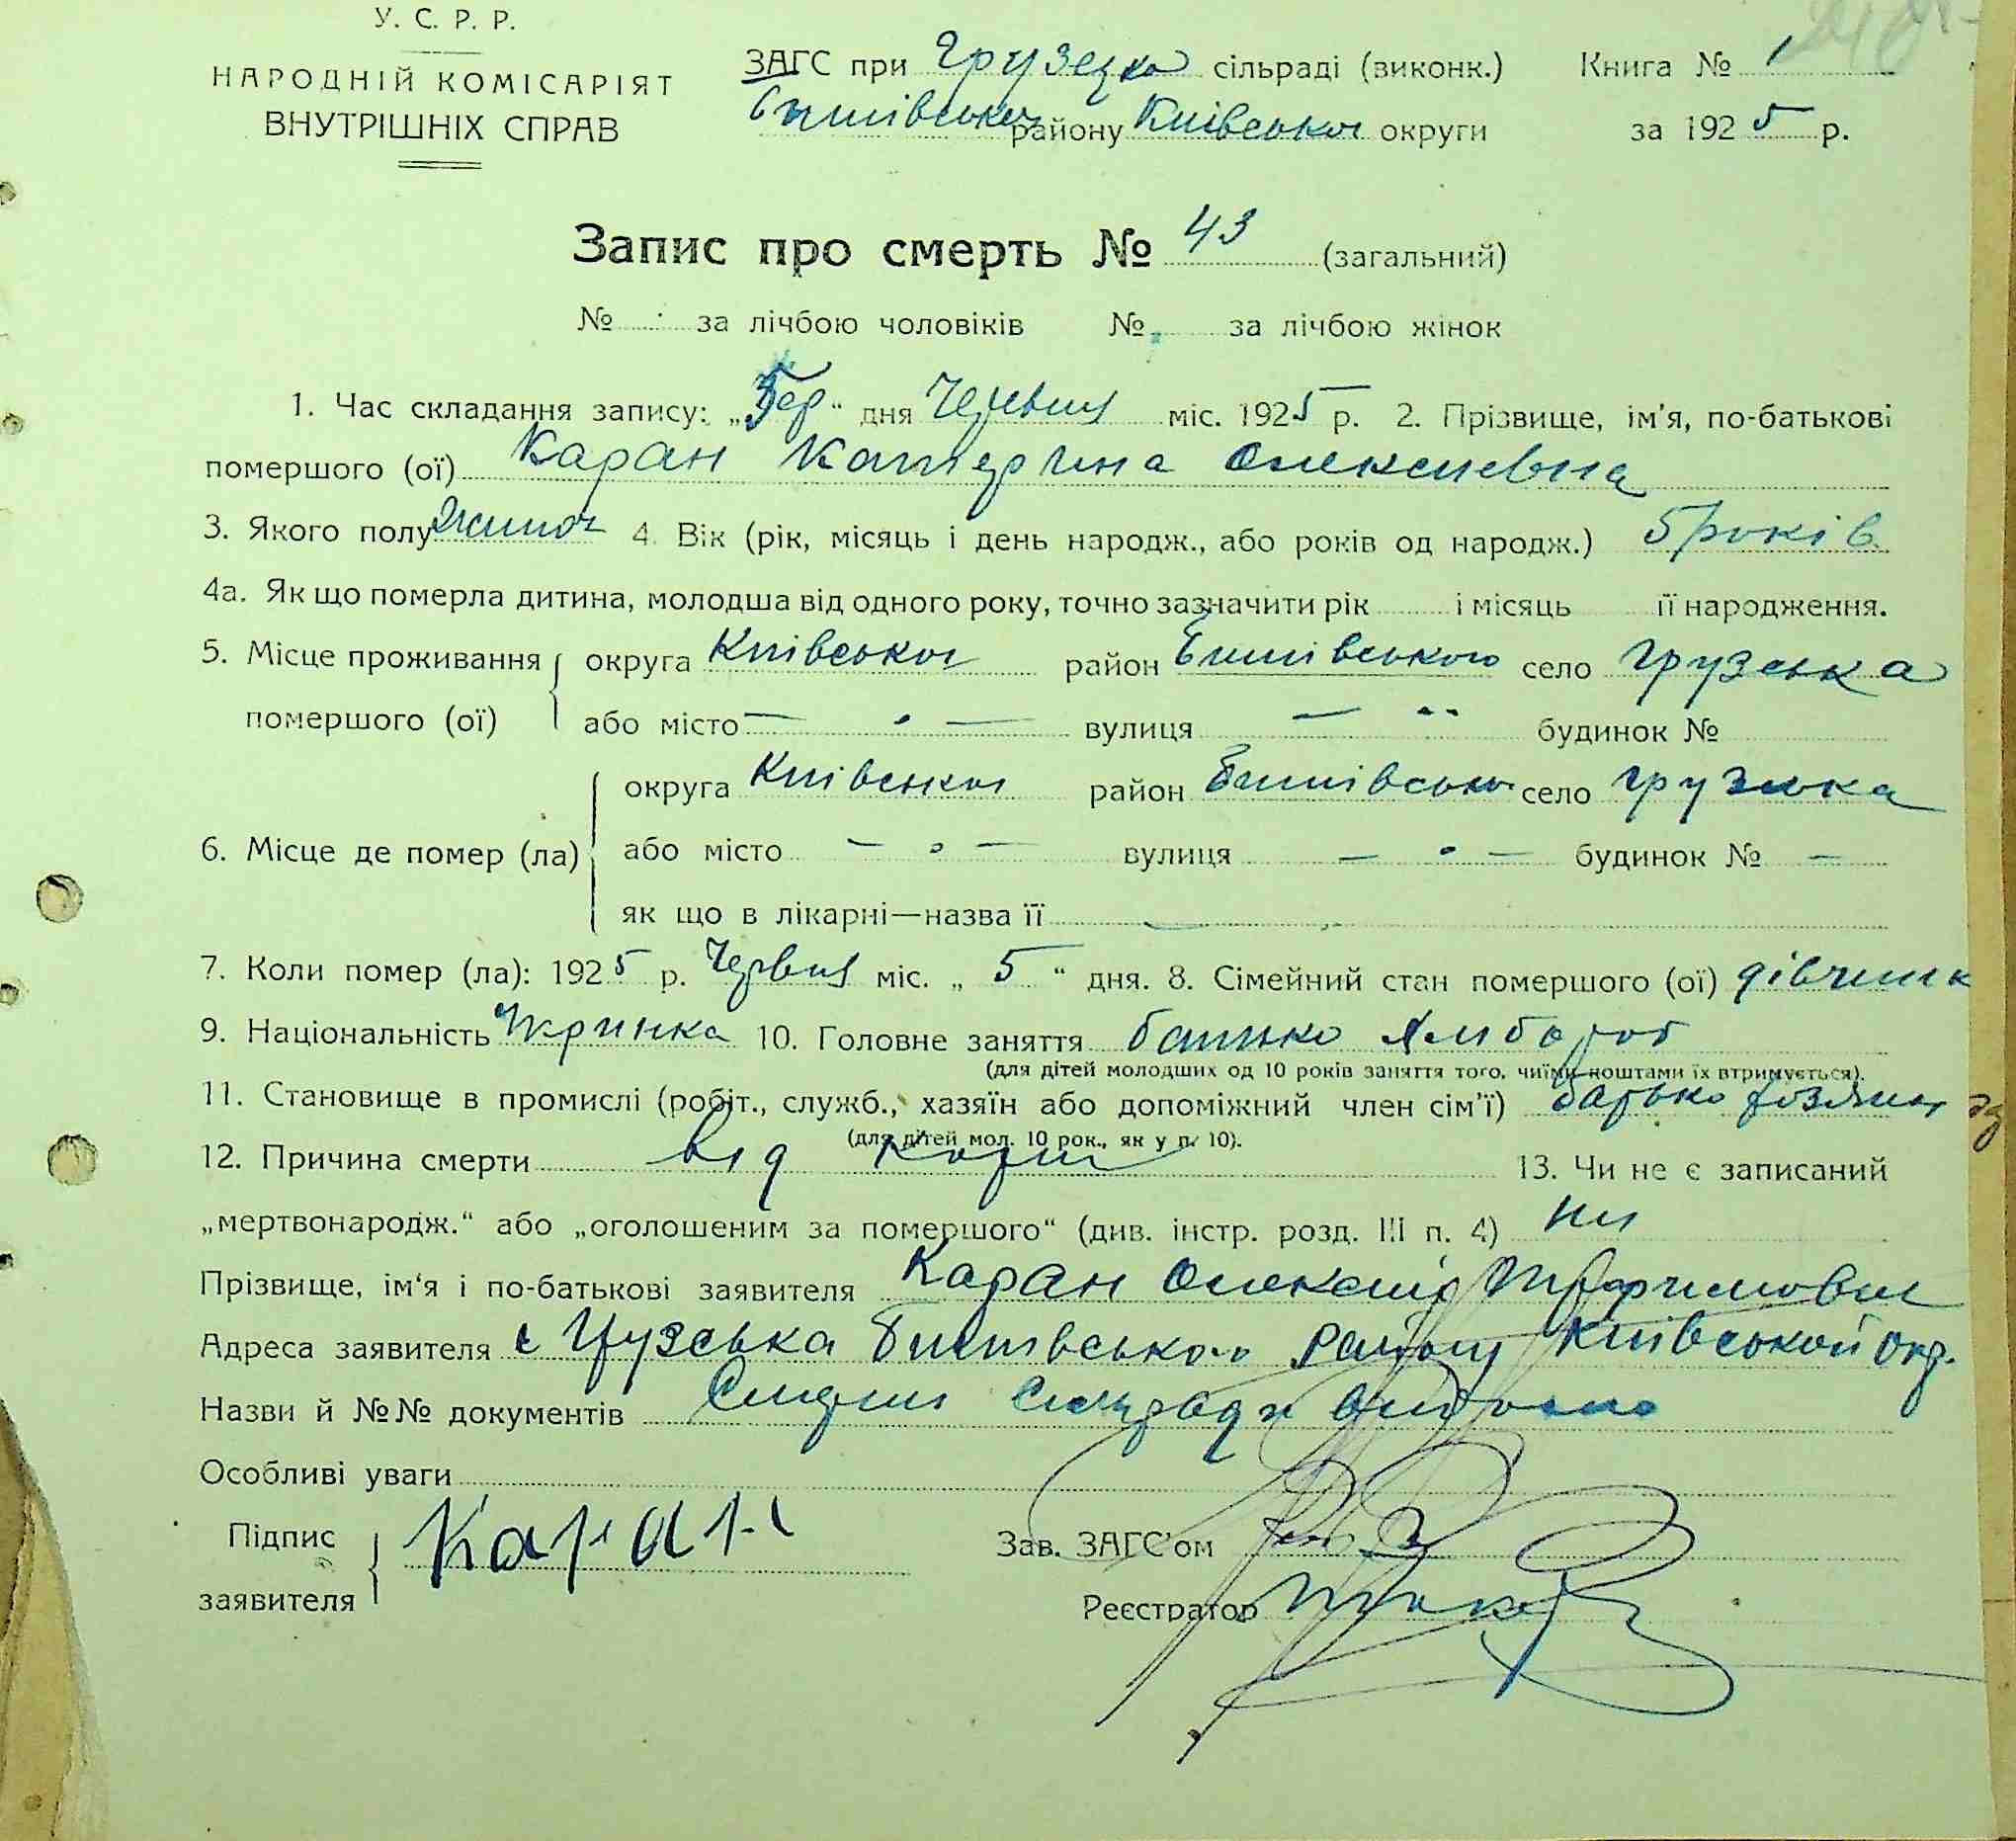 У. С. Р. Р.
НАРОДНІЙ КОМІСАРІЯТ
ВНУТРІШНІХ СПРАВ
ЗАГС при Грузецко сільраді (виконк.)
района Київської округи
Книга № 1
за 1925 р.
Запис про смерть № 43 (загальний)
№ за лічбою чоловіків № за лічбою жінок
1. Час складання запису: „ “ дня Червня міс. 1925 р. 2. Прізвище, ім'я, по-батькові
помершого (ої) Каран Катерина Олексиевна
3. Якого полу 4. Вік (рік, місяць і день народж., або років од народж.) 5 років
4а. Як що померла дитина, молодша від одного року, точно зазначити рік і місяць її народження.
5. Місце проживання округа Київської район Бишівського село Грузська
помершого (ої) або місто — — вулиця — будинок №
округа Київської район Бишівської село Грузська
6. Місце де помер (ла) або місто — — вулиця — — будинок № —
як що в лікарні—назва її
7. Коли помер (ла): 1925 р. Червня міс. „ 5 “ дня. 8. Сімейний стан помершого (ої) дівчинк
9. Національність Укринка 10. Головне заняття батько Хлибороб
(для дітей молодших од 10 років заняття того, чиїми коштами їх втримується).
11. Становище в промислі (робіт., служб., хазяїн або допоміжний член сім'ї) батько хозяин
(для дітей мол. 10 рок., як у п. 10).
12. Причина смерти від Кори 13. Чи не є записаний
„мертвонародж.“ або „оголошеним за помершого“ (див. інстр. розд. III п. 4) ни
Прізвище, ім'я і по-батькові заявителя Каран Олексий
Адреса заявителя с Грузська Бишівського Району Київської Окр.
Назви й №№ документів
Особливі уваги
Підпис Каран
заявителя
Зав. ЗАГС'ом
Реєстратор